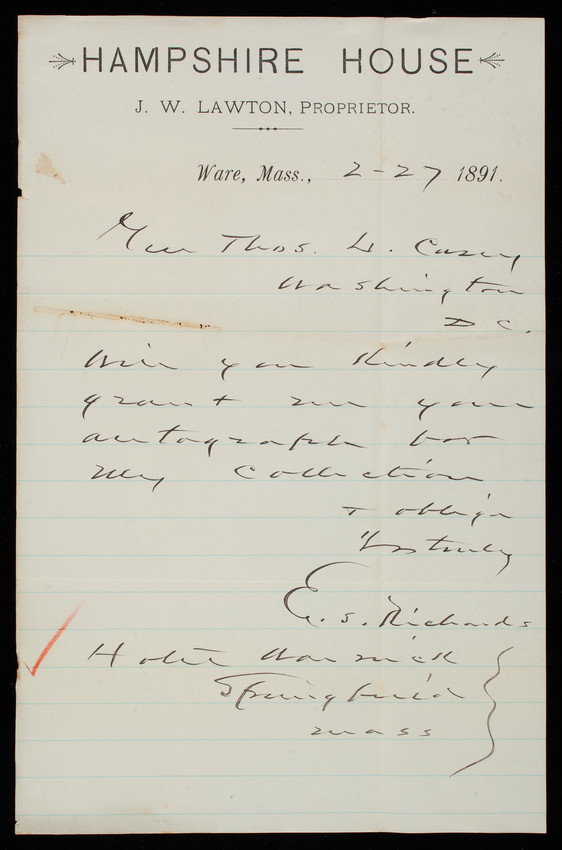 HAMPSHIRE HOUSE
J. W. LAWTON, PROPRIETOR.
Ware, Mass., 2-27 1891.
Gen Thos. L. Casey
Washington
D C.
Will you kindly
grant me your
autograph for
my collection
& oblige
Yrs truly
E. S. Richards
Hotel Warwick
Springfield
Mass